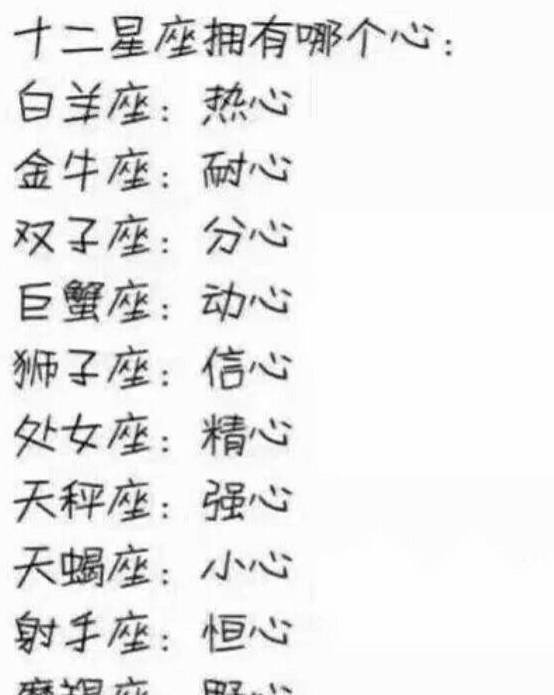 十二星座拥有哪个心：
白羊座：热心
金牛座：耐心
双子座：分心
巨蟹座：动心
狮子座：信心
处女座：精心
天秤座：强心
天蝎座：小心
射手座：恒心
摩羯座：野心